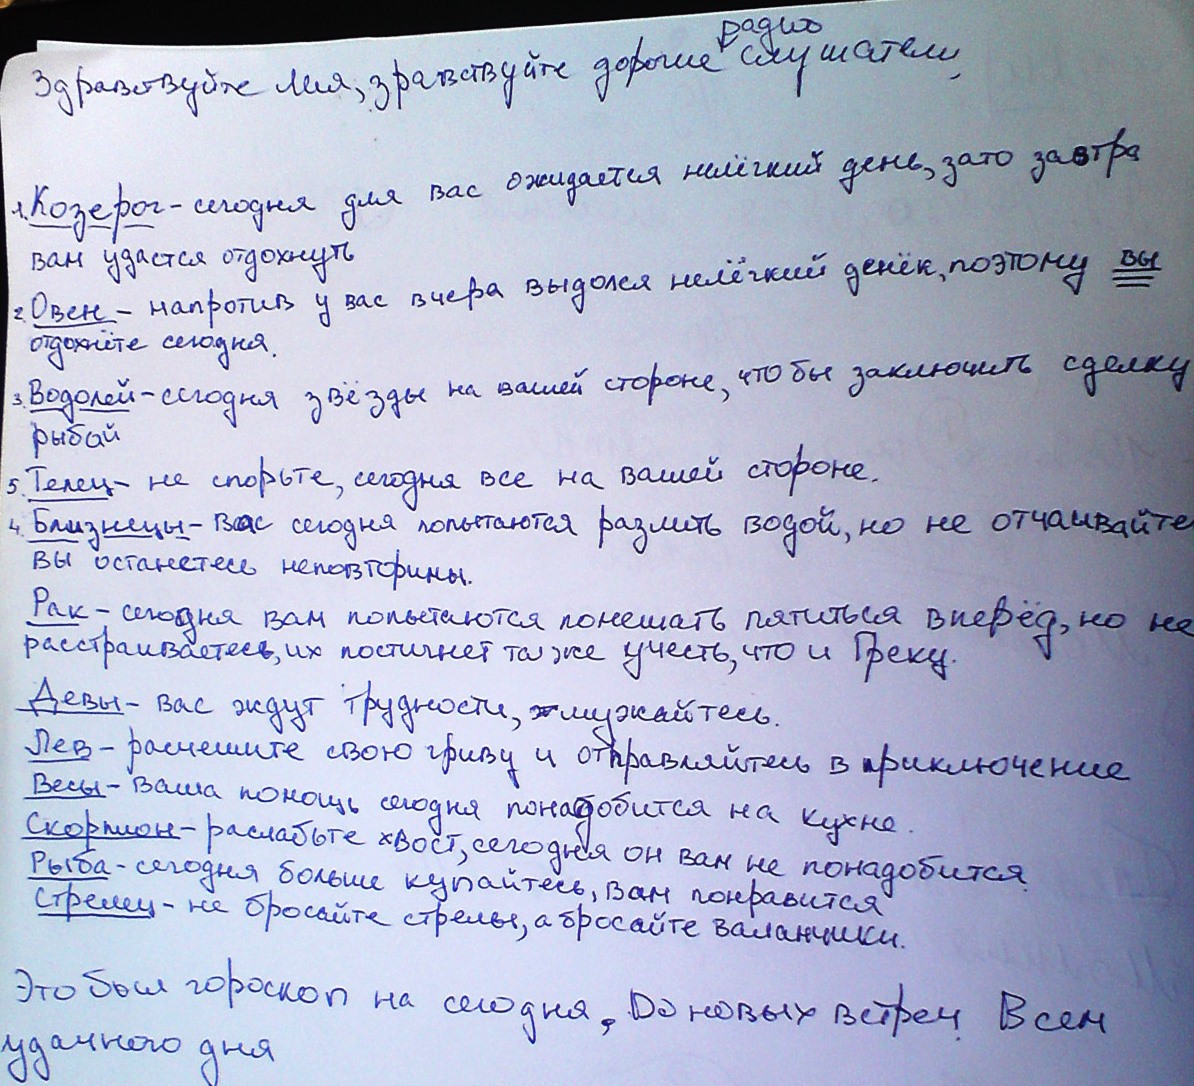 радио
Здравствуйте Лия, зравствуйте дорогие слушатели,
1. Козерог - сегодня для вас ожидается нелёгкий день, зато завтра
вам удастся отдохнуть
2. Овен - напротив у вас вчера выдолся нелёгкий денёк, поэтому вы
отдохнёте сегодня.
3. Водолей - сегодня звёзды на вашей стороне, что бы заключить сделку
рыбой
5. Телец - не спорьте, сегодня все на вашей стороне.
4. Близнецы - Вас сегодня попытаются разлить водой, но не отчаивайте
вы останетесь неповторимы.
Рак - сегодня вам попытаются помешать пятиться вперёд, но не
расстраиваетесь, их постигнет таже учесть, что и Греку.
Девы - вас ждут трудности, мужайтесь.
Лев - расчешите свою гриву и отправляйтесь в приключение
Весы - Ваша помощь сегодня понадобится на кухне.
Скорпион - раслабьте хвост, сегодня он вам не понадобится
Рыба - сегодня больше купайтесь, вам понравится
Стрелец - не бросайте стрелы, а бросайте валанчики.
Это был гороскоп на сегодня, До новых встреч. Всем
удачного дня